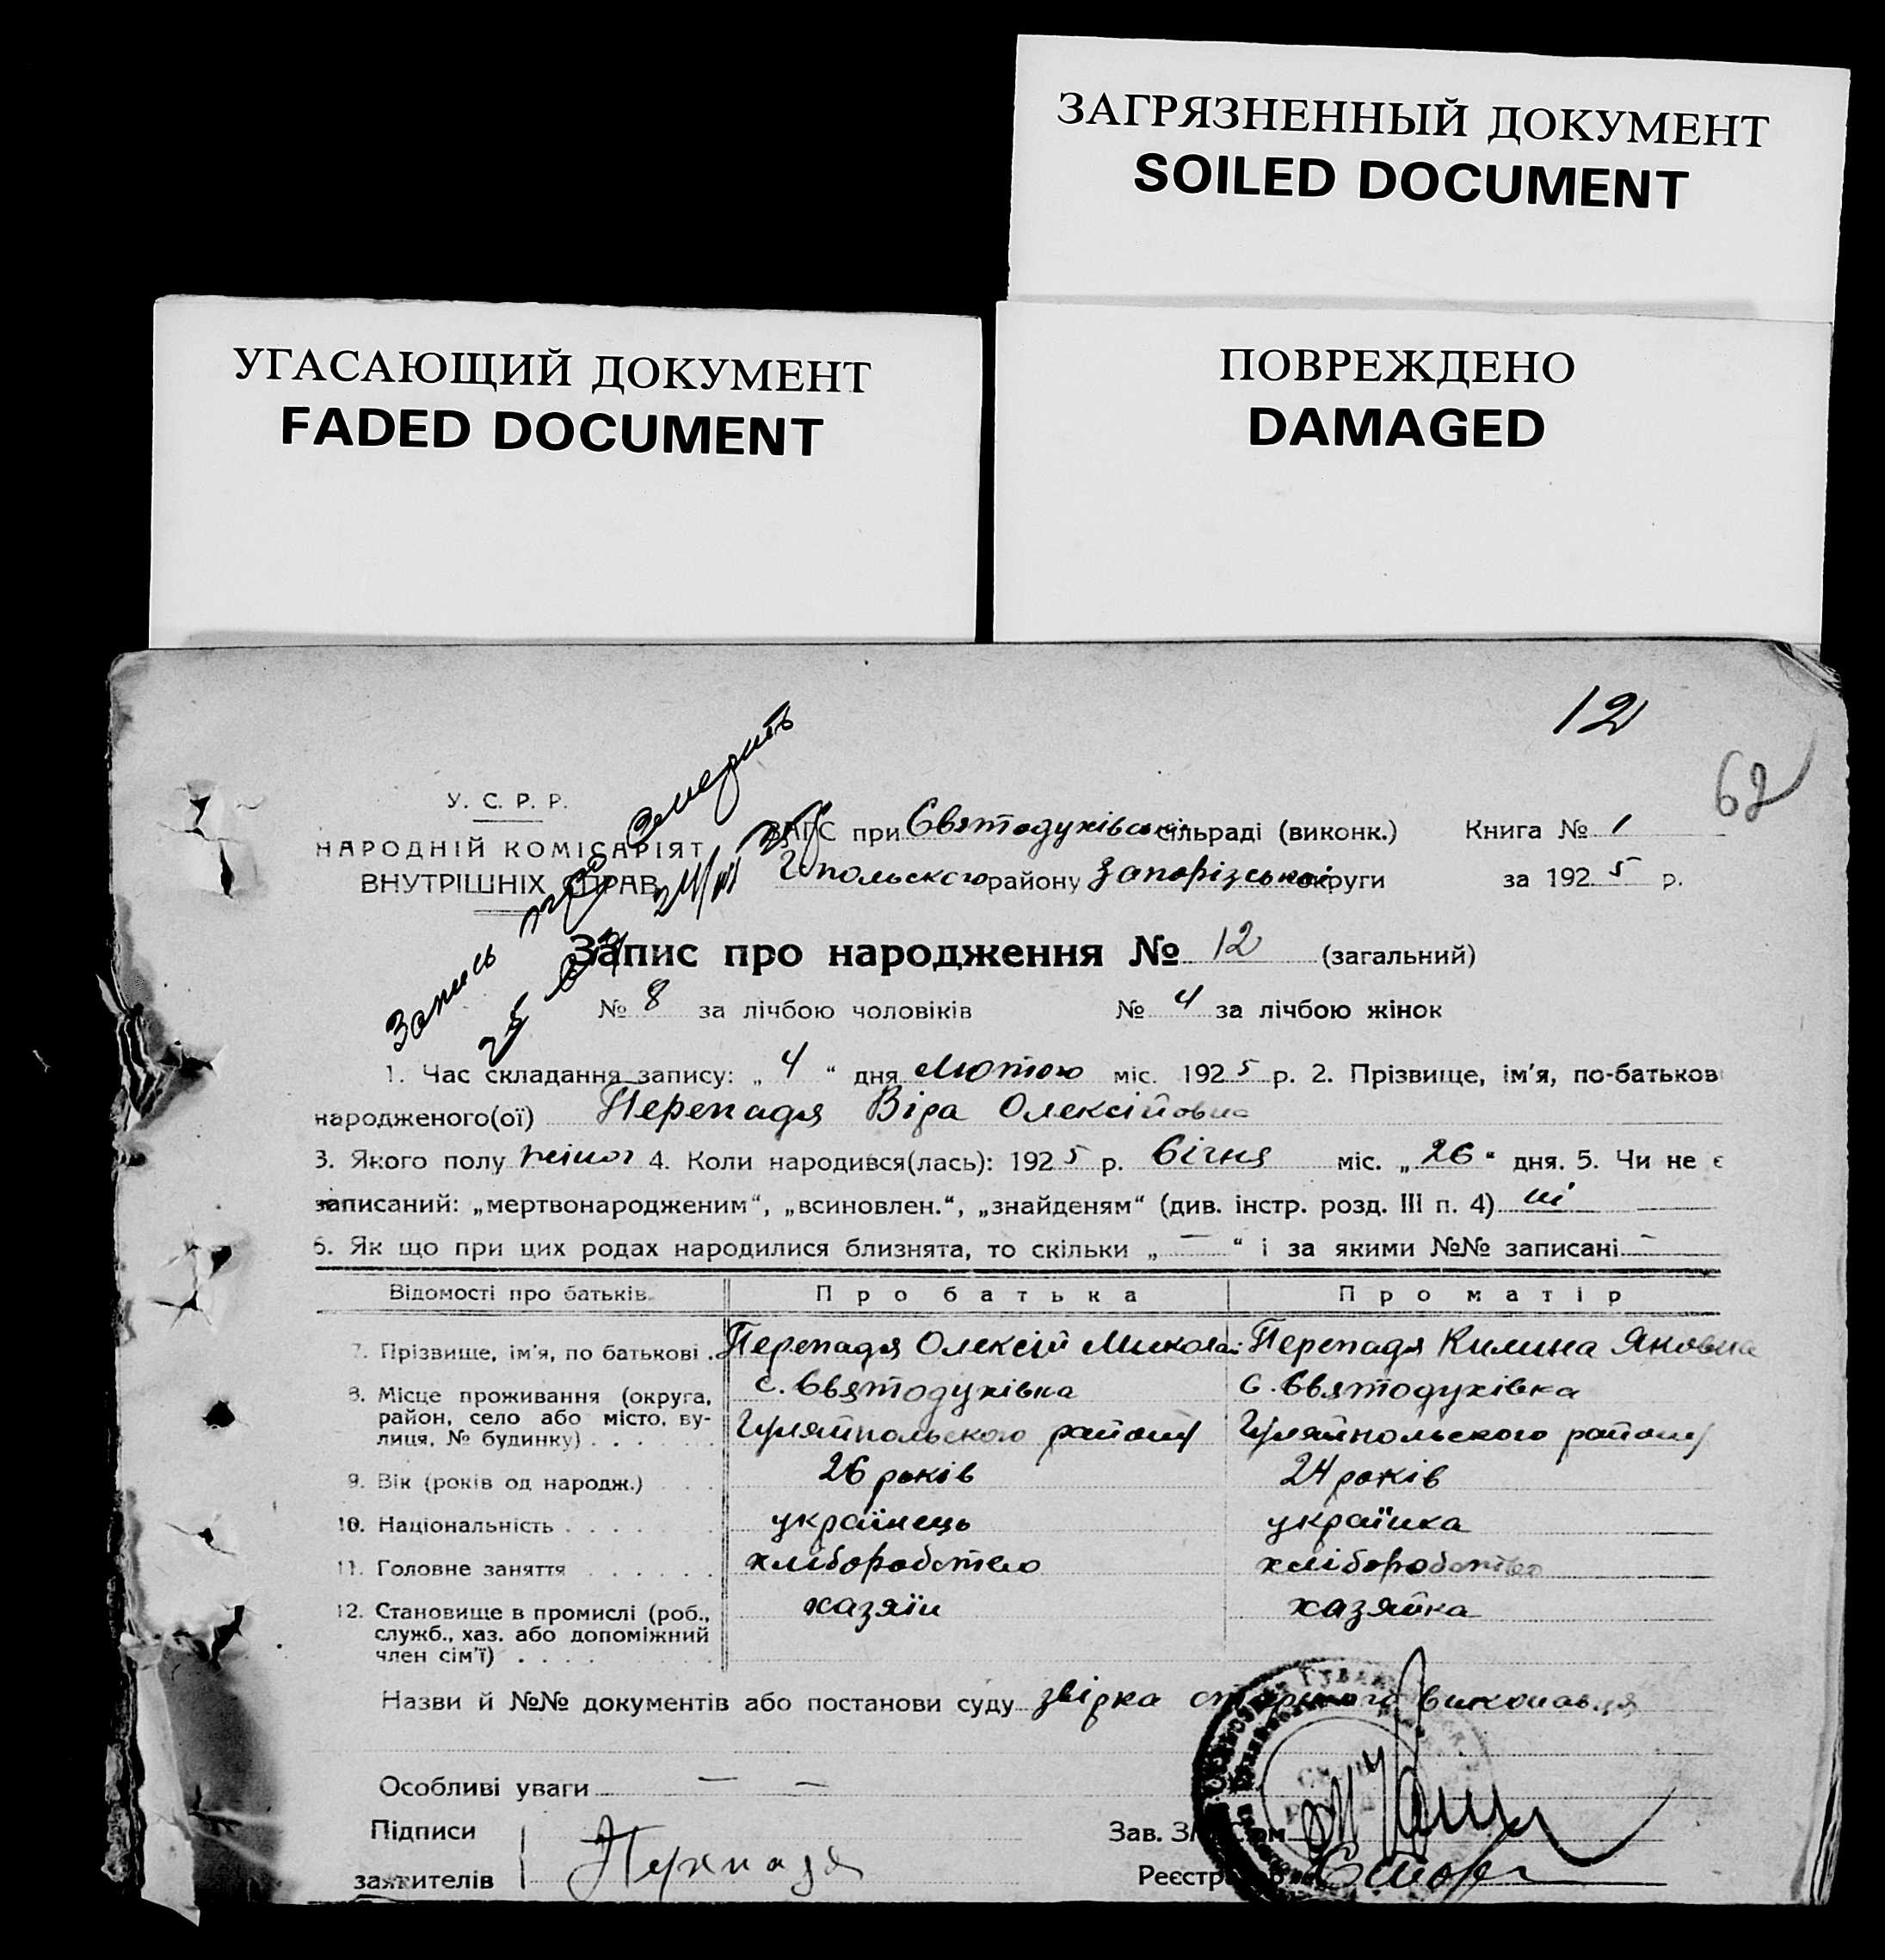 ЗАГРЯЗНЕННЫЙ ДОКУМЕНТ
SOILED DOCUMENT
УГАСАЮЩИЙ ДОКУМЕНТ
FADED DOCUMENT
ПОВРЕЖДЕНО
DAMAGED
12
62
У. С. Р. Р.
НАРОДНІЙ КОМІСАРІЯТ
ВНУТРІШНІХ СПРАВ
Запись
ЗАГС при Святодухівськ сільраді (виконк.) Книга № 1
Г польского району Запорізької округи за 1925 р.
Запис про народження № 12 (загальний)
№ 8 за лічбою чоловіків № 4 за лічбою жінок
1. Час складання запису: „ 4 “ дня Лютого міс. 1925 р. 2. Прізвище, ім'я, по-батьков
народженого(ої) Перепадя Віра Олексійовна
3. Якого полу жіноч 4. Коли народився(лась): 1925 р. Січня міс. „ 26 “ дня. 5. Чи не є
записаний: „мертвонародженим“, „всиновлен.“, „знайденям“ (див. інстр. розд. III п. 4) ні
6. Як що при цих родах народилися близнята, то скільки „ — “ і за якими №№ записані —
Відомості про батьків. Про батька Про матір
7. Прізвище, ім'я, по батькові . Перепадя Олексій Микола: Перепадя Килина Яковна
8. Місце проживання (округа, район, село або місто, вулиця, № будинку) . . . . .
с. Святодухівка с. Святодухівка
Гуляйпольского району Гуляйпольского району
9. Вік (років од народж.) . . . 26 років 24 років
10. Національність . . . . . українець українка
11. Головне заняття . . . . . . хліборобство хліборобство
12. Становище в промислі (роб., хазяїн хазяйка
служб., хаз. або допоміжний
член сім'ї) . . . .
Назви й №№ документів або постанови суду звірка виконавця
Особливі уваги — —
Підписи
Зав. ЗАГСом
заявителів Перепадя Реєстр